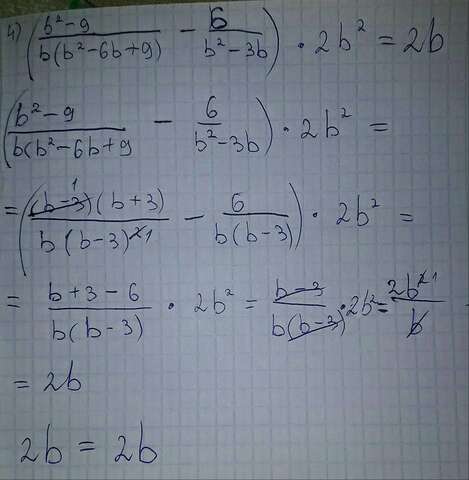 4) ((b²-9)/(b(b²-6b+9)) - 6/(b²-3b)) · 2b² = 2b
((b²-9)/(b(b²-6b+9) - 6/(b²-3b)) · 2b² =
= ((b-3)¹(b+3)/(b(b-3)²¹) - 6/(b(b-3))) · 2b² =
= (b+3-6)/(b(b-3)) · 2b² = (b-3)/(b(b-3)) · 2b² = 2b²¹/b =
= 2b
2b = 2b